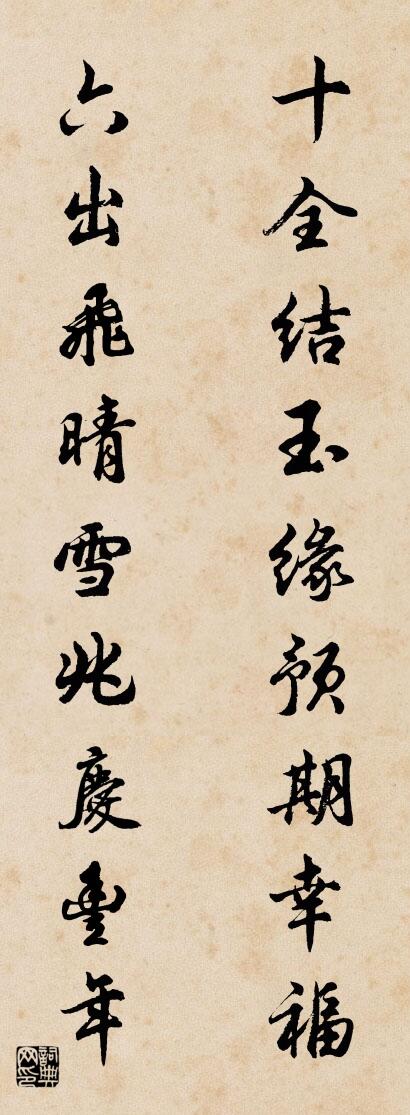 十全结玉缘预期幸福
六出飛晴雪兆慶豐年
詞典网印